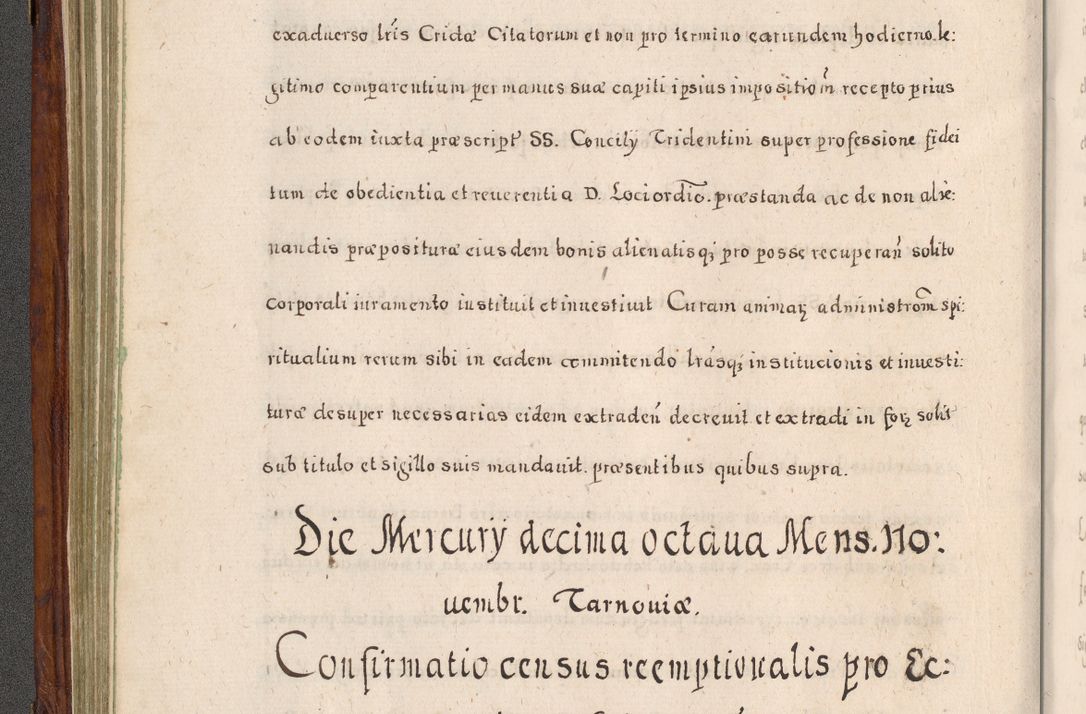 exaduerso lr̃is Cridæ Citatorum et non pro termino earundem hodierno le:
gitimo comparentium per manus suæ capiti ipsius impositiom̃ recepto prius
ab eodem iuxta præscript SS. Concilÿ Tridentini super professione fidei
tum de obedientia et reuerentia D. Lociordĩo. præstanda ac de non alie:
nandis præpositura eiusdem bonis alienatisqꝫ pro posse recuperañ solito
corporali iuramento instituit et inuestiuit Curam animaꝝ administrom̃ spi:
ritualium rerum sibi in eadem committendo lrãsqꝫ institucionis et inuesti:
turæ desuper necessarias eidem extradeñ decreuit et extradi in forꝫ solit
sub titulo et sigillo suis mandauit. præsentibus quibus supra.
Die Mercurÿ decima octaua Mens. No:
uembr. Tarnouiæ.
Confirmatio census reemptionalis pro Ec: